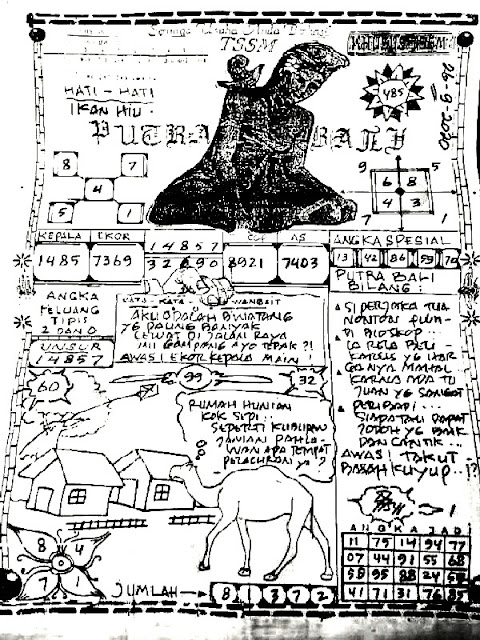 TSSM
HATI - HATI
IKAN HIU.
PUTRA BALI
485
16-9-2020
8 7
4
5 1
9 5
6 8
4 3
7 1
KEPALA EKOR
AS
ANGKA SPESIAL
1485 7369
14857
32690
8921 7403
13 42 86 59 70
PUTRA BALI
BILANG:
ANGKA
PELUANG
TIPIS
2 DAN 0
UNSUR
14857
KATA - KATA WANGSIT
AKU ADALAH BINATANG
YG PALING BANYAK
LEWAT DI JALAN RAYA
INI GAMPANG AYO TEBAK ?!
AWAS! EKOR KEPALA MAIN!
SI PERJAKA TUA
NONTON FILM
DI BIOSKOP..
LA RELA BELI
KARCIS YG HAR
GANYA MAHAL
KARNA ADA TU
JUAN YG SANGAT
PERIBADI...
SIAPA TAU DAPAT
JODOH YG BAIK
DAN CANTIK...
AWAS! TAKUT
BASAH KUYUP..!?
60
99
32
RUMAH HUNIAN
KOK SEPI..
SEPERTI KUBURAN
TAMAN PAHLA-
WAN APA TEMPAT
PELACURAN YA?
8 4
7 1
JUMLAH → 8 1 3 7 2
ANGKA JADI
11 75 14 94 77
07 44 91 55 68
58 95 88 24
41 71 31 76